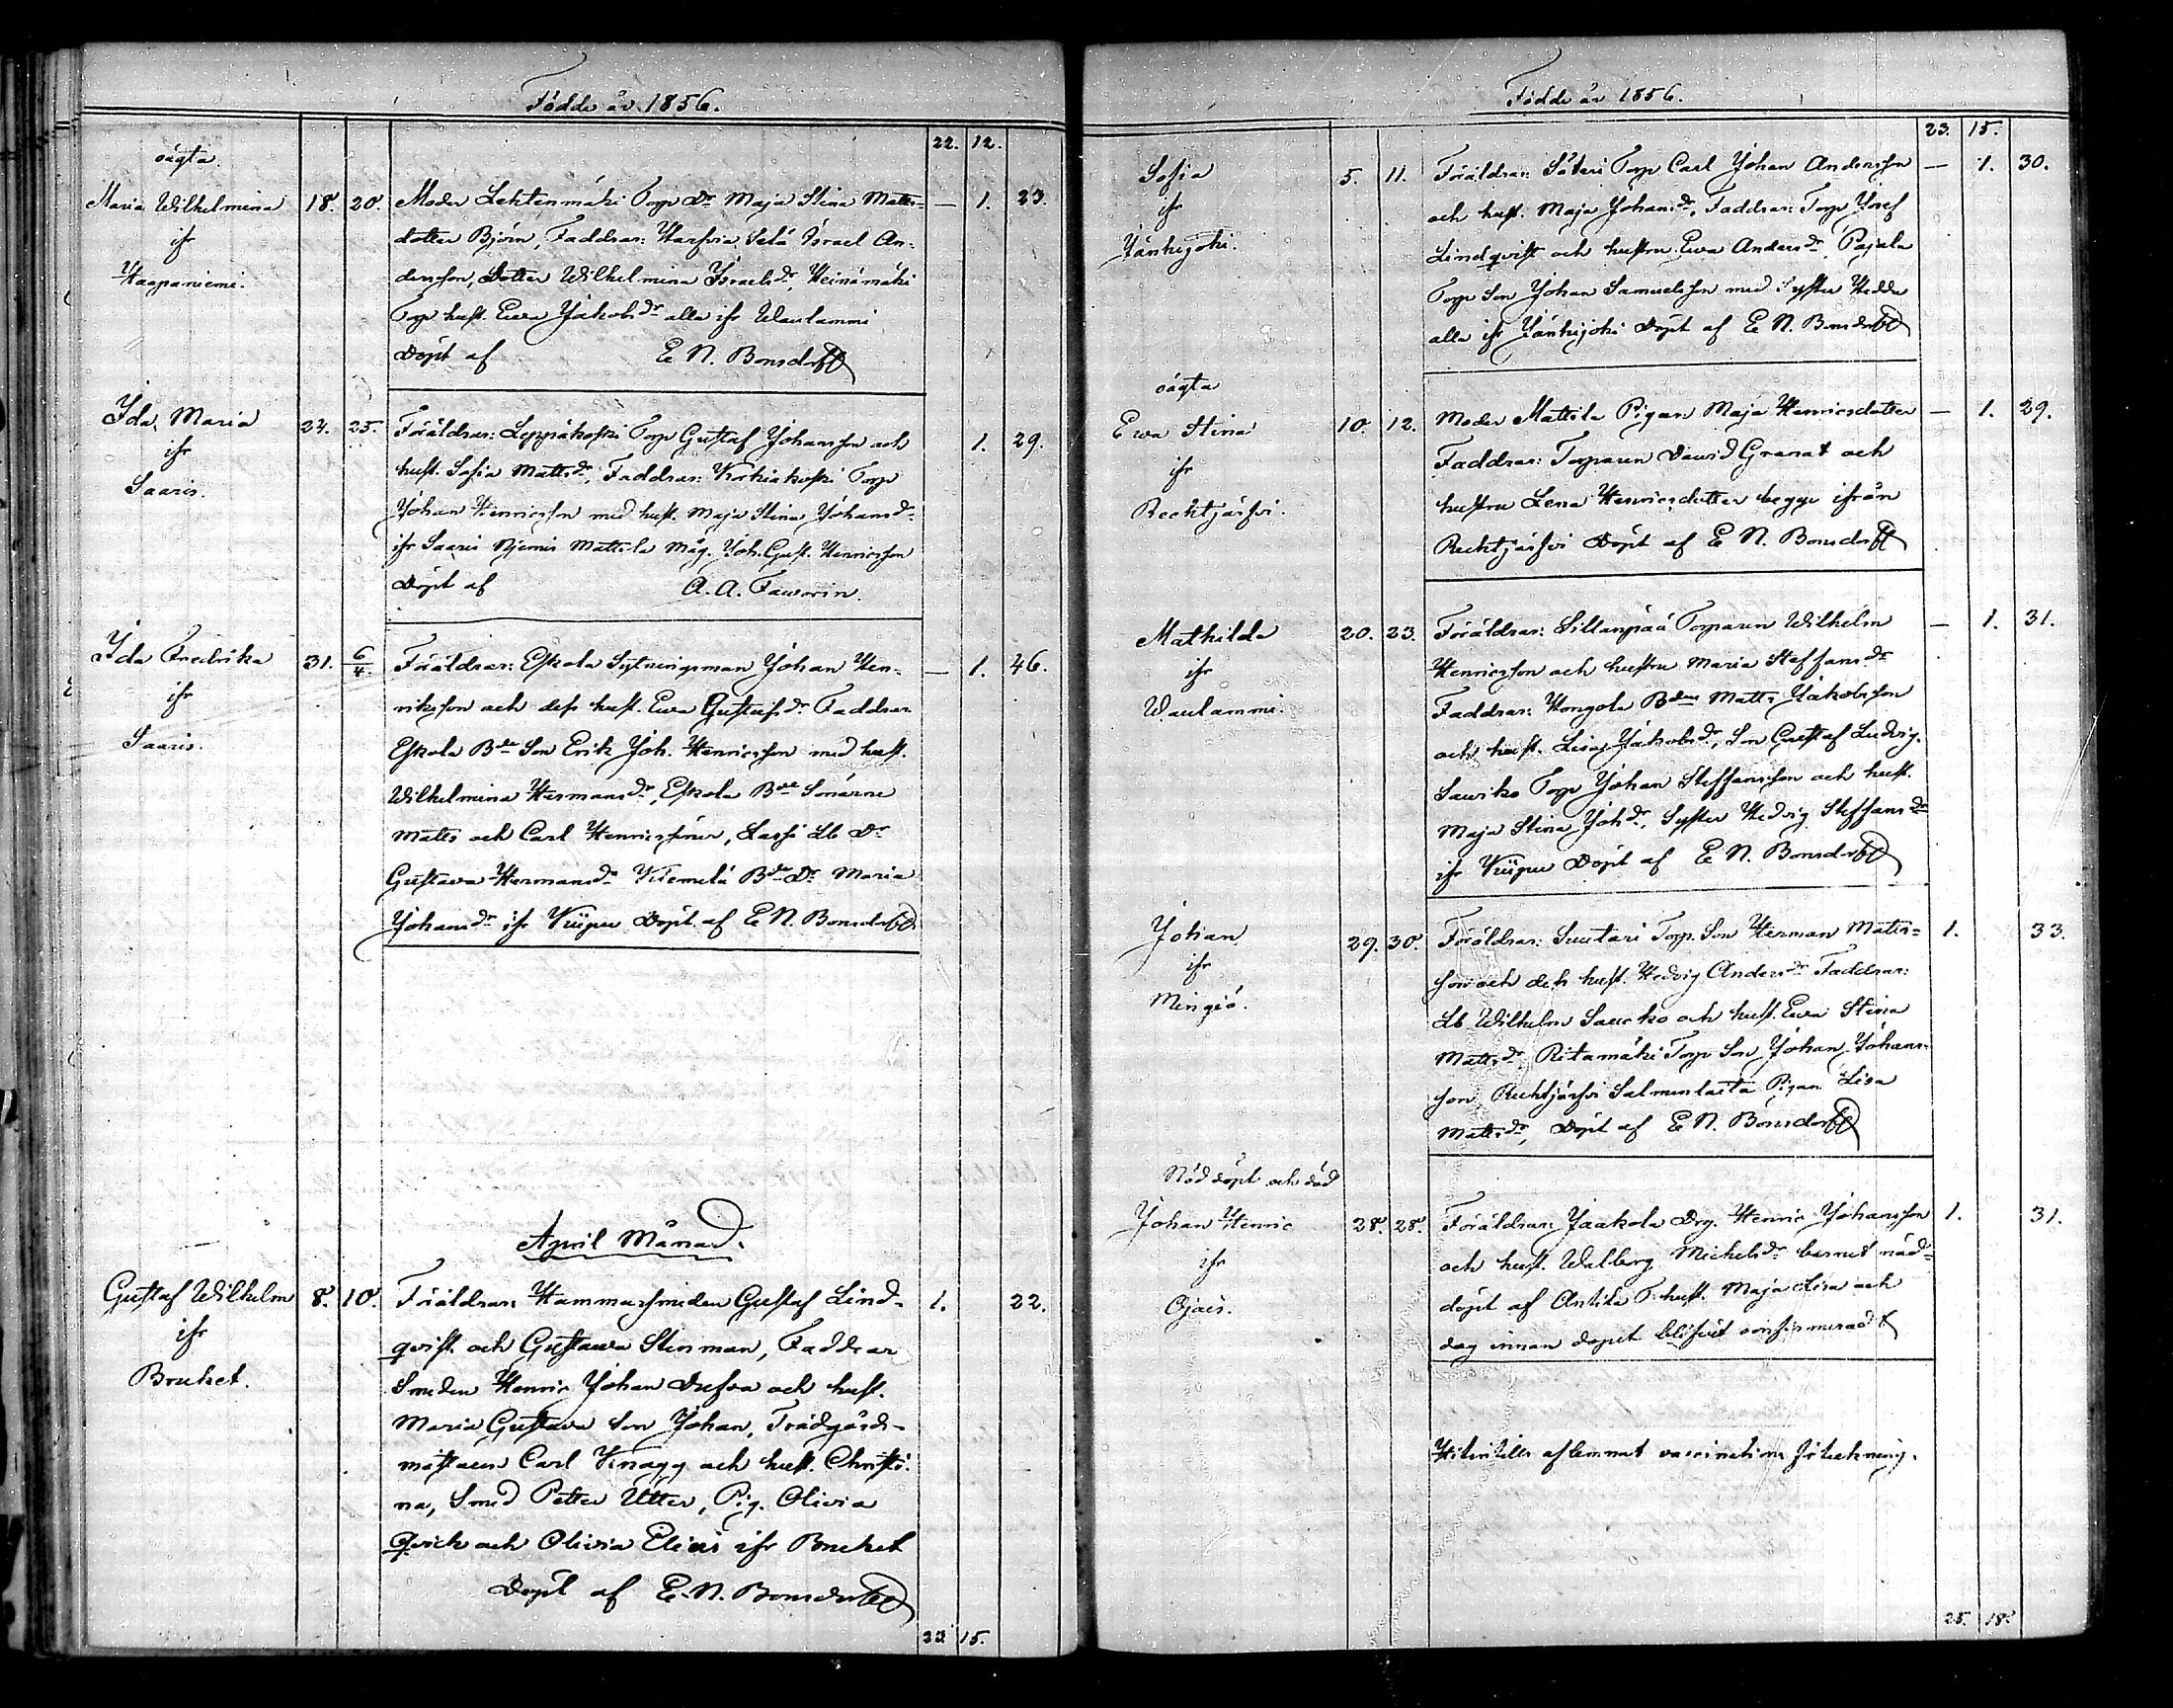 Födde år 1856.
22. 12.
oägta
Maria Wilhelmina 18. 20. Moder Lehtenmäki Torp Dr Maja Stina Matts- — 1. 23.
ifr dotter Björn, Faddrar: Harfvia Israel An-
Haapaniemi. dersson, Dotter Wilhelmina Israelsdr, Heinämäki
Torp hust. Ewa Jakobsdr alla ifr Waulammi
Döpt af E N. Bonsdorff
Ida Maria 24. 25. Föräldrar: Leppäkoski Torp Gustaf Johansson och 1. 29.
ifr hust. Sofia Mattsdr, Faddrar: Korkiakoski Torp
Saaris. Johan Henricsson med hust. Maja Stina Johansdr
ifr Saaris Mattila Måg. Joh. Gust. Henricsson
Döpt af A. A. Faworin.
Ida Fredrika 31. 6/4. Föräldrar: Eskola Sytningsman Johan Hen- — 1. 46.
ifr riksson och dess hust. Ewa Gustafsdr Faddrar
Saaris. Eskola Bde Son Erik Joh. Henricsson med hust.
Wilhelmina Hermansdr, Eskola Bde Sönerne
Matts och Carl Henricssöner, Lassi Lb Dr
Gustava Hermansdr Klemelä Bde Dr Maria
Johansdr ifr Kuipu Döpt af E N. Bonsdorff
April Månad.
Gustaf Wilhelm 8. 10. Föräldrar: Hammarsmeden Gustaf Lind- 1. 22.
ifr qvist och Gustawa Stinman, Faddrar
Bruket. Smeden Henric Johan Dufva och hust.
Maria Gustava Son Johan, Trädgårds-
mästaren Carl Knagg och hust. Christi-
na, Smed Petter Utter, Pig. Olivia
Qvick och Olivia Elieis ifr Bruket
Döpt af E. N. Bonsdorff
23. 15.
Födde år 1856.
23. 15.
Sofia 5. 11. Föräldrar: Säteri Torp Carl Johan Andersson — 1. 30.
ifr och hust. Maja Johansdr, Faddrar: Torp Josef
Jänhijoki. Lindqvist och hustru Ewa Andersdr, Pajula
Torp Son Johan Samuelsson med Syster Hedda
alla ifr Jänhijoki Döpt af E N. Bonsdorff
oägta
Ewa Stina 10. 12. Moder Mattila Pigan Maja Henricsdotter — 1. 29.
ifr Faddrar: Torparen David Granat och
Rechtjärfvi. hustru Lena Henricsdotter begge ifrån
Rechtjärfvi Döpt af E N. Bonsdorff
Mathilda 20. 23. Föräldrar: Sillanpää Torparen Wilhelm — 1. 31.
ifr Henricsson och hustru Maria Staffansdr
Waulammi. Faddrar: Hongola Bden Matts Jakobsson
och hust. Lisa Jakobsdr, Son Gustaf Ludvig.
Sauiko Torp Johan Steffansson och hust.
Maja Stina Johdr, Syster Hedvig Steffansdr
ifr Kuipu Döpt af E N. Bonsdorff
Johan 29. 30. Föräldrar: Suutari Torp. Son Herman Matts- 1. 33.
ifr son och dess hust. Hedvig Andersdr Faddrar:
Mengiö. Lb Wilhelm Saucko och hust. Ewa Stina
Mattsdr, Ritamäki Torp Son Johan Johans-
son Rechtjärfvi Salmenlaita Pigan Lisa
Mattsdr, Döpt af E N. Bonsdorff
Nöd döpt och död
Johan Henric 28. 28. Föräldrar: Jaakola Drg. Henric Johansson 1. 31.
ifr och hust. Walborg Michelsdr barnet nöd-
Ojais. döpt af Antila T. hust. Maja Lisa och
dog innan dopet blifvit confirmerad
Hitintills aflemnat vaccinations förtekning.
25. 18.